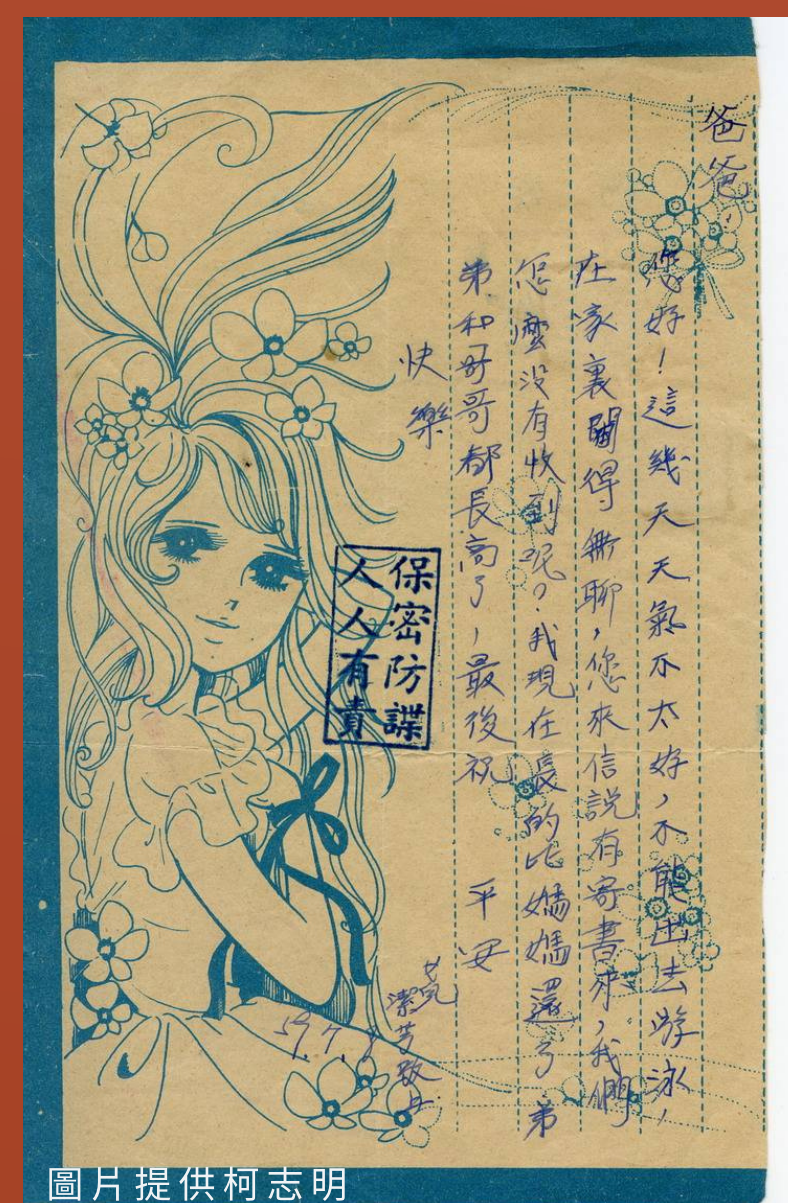 爸爸,
您好!這幾天天氣不太好,不能出去游泳,
在家裏得無聊,您來信說有寄書來,我們
怎麼没有收到呢?我現在長的比媽媽還了弟
弟和哥哥都長高了,最後祝 平安
快樂
女兒
敬上
59.7.8
保密防諜
人人有責
圖片提供柯志明